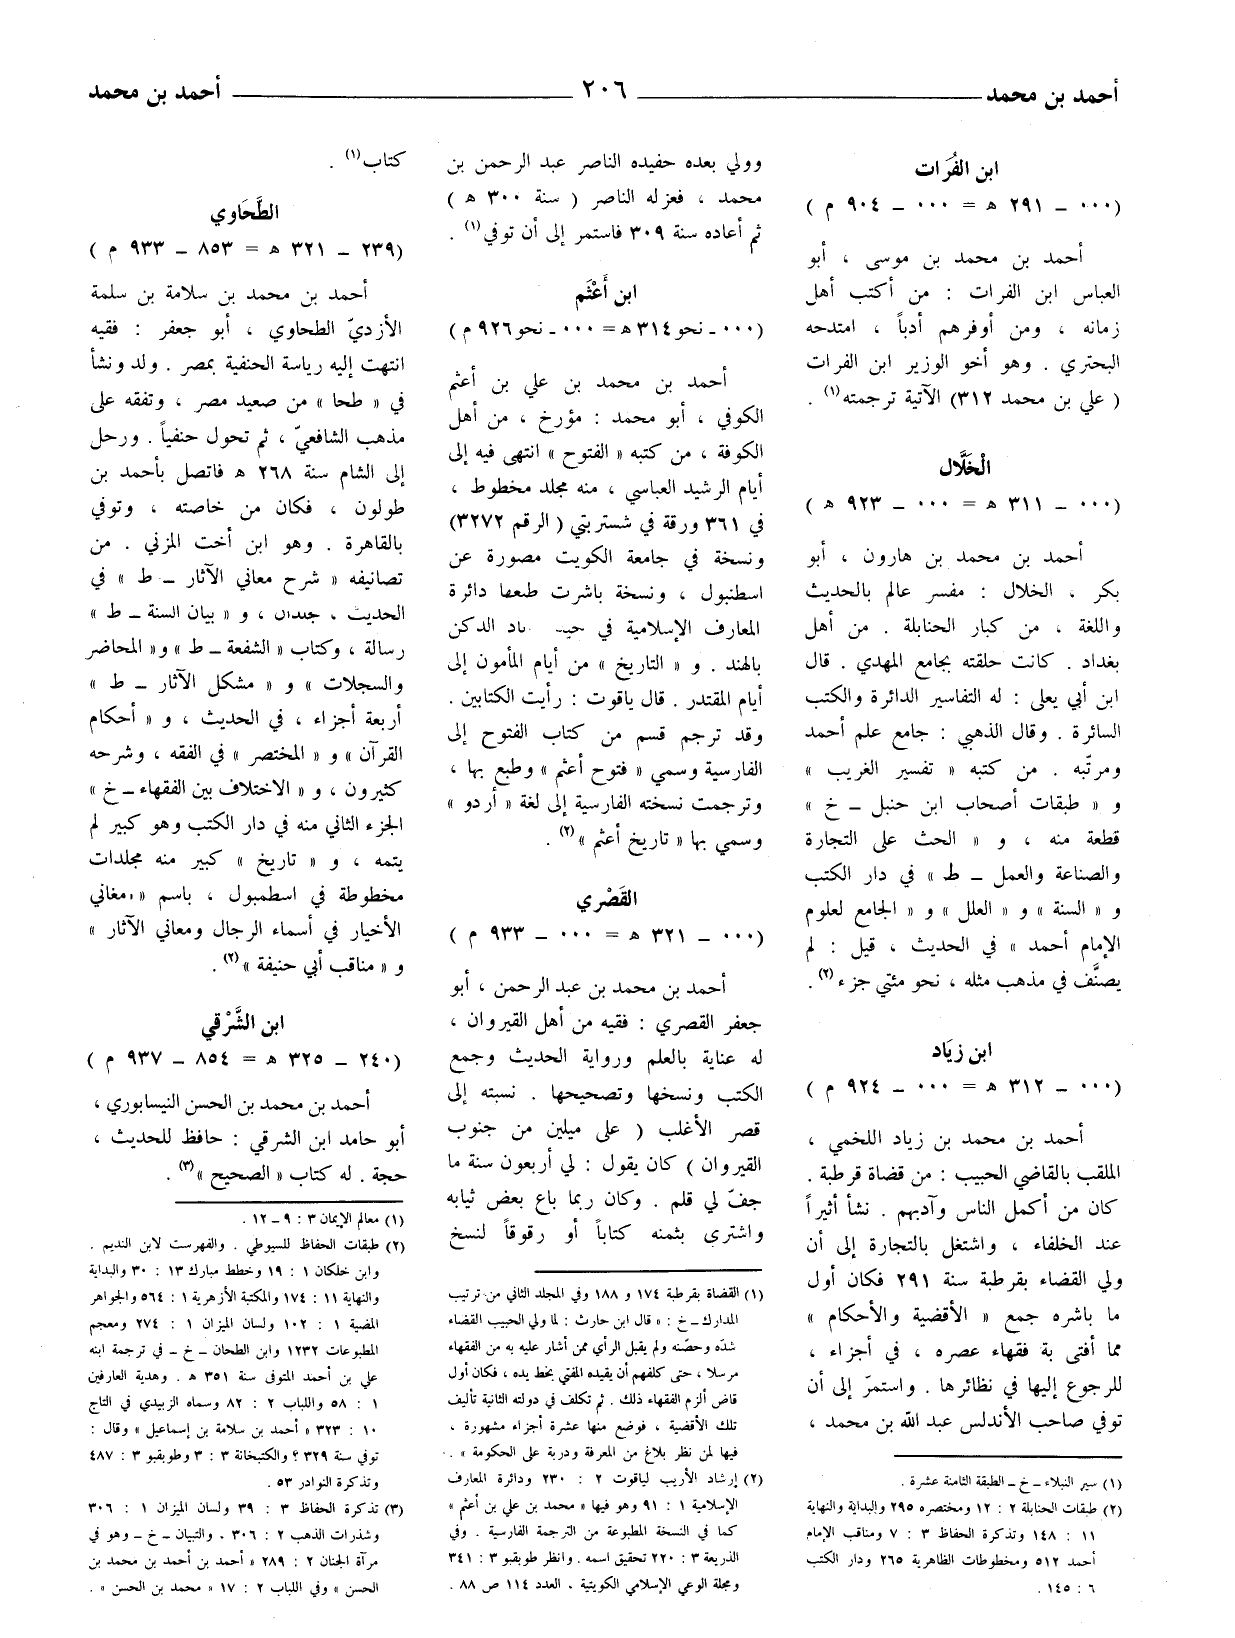 أحمد بن محمد ــــــ ٢٠٦ ــــــ أحمد بن محمد
ابن الفُرَات
(٠٠٠ ــ ٢٩١ هـ = ٠٠٠ ــ ٩٠٤ م )
أحمد بن محمد بن موسى ، أبو
العباس ابن الفرات : من أكتب أهل
زمانه ، ومن أوفرهم أدباً ، امتدحه
البحتري . وهو أخو الوزير ابن الفرات
( علي بن محمد ٣١٢) الآتية ترجمته(١) .
الْخَلَّال
(٠٠٠ ــ ٣١١ هـ = ٠٠٠ ــ ٩٢٣ هـ )
أحمد بن محمد بن هارون ، أبو
بكر ، الخلال : مفسر عالم بالحديث
واللغة ، من كبار الحنابلة . من أهل
بغداد . كانت حلقته بجامع المهدي . قال
ابن أبي يعلى : له التفاسير الدائرة والكتب
السائرة . وقال الذهبي : جامع علم أحمد
ومرتّبه . من كتبه « تفسير الغريب »
و « طبقات أصحاب ابن حنبل ــ خ »
قطعة منه ، و « الحث على التجارة
والصناعة والعمل ــ ط » في دار الكتب
و « السنة » و « العلل » و « الجامع لعلوم
الإمام أحمد » في الحديث ، قيل : لم
يصنَّف في مذهب مثله ، نحو مئتي جزء (٢).
ابن زيَاد
(٠٠٠ ــ ٣١٢ هـ = ٠٠٠ ــ ٩٢٤ م )
أحمد بن محمد بن زياد اللخمي ،
الملقب بالقاضي الحبيب : من قضاة قرطبة .
كان من أكمل الناس وآدبهم . نشأ أثيراً
عند الخلفاء ، واشتغل بالتجارة إلى أن
ولي القضاء بقرطبة سنة ٢٩١ فكان أول
ما باشره جمع « الأقضية والأحكام »
مما أفتى بة فقهاء عصره ، في أجزاء ،
للرجوع إليها في نظائرها . واستمرّ إلى أن
توفي صاحب الأندلس عبد الله بن محمد ،
(١) سير النبلاء ــ خ ــ الطبقة الثامنة عشرة .
(٢) طبقات الحنابلة ٢ : ١٢ ومختصره ٢٩٥ والبداية والنهاية
١١ : ١٤٨ وتذكرة الحفاظ ٣ : ٧ ومناقب الإمام
أحمد ٥١٢ ومخطوطات الظاهرية ٢٦٥ ودار الكتب
٦ : ١٤٥ .
وولي بعده حفيده الناصر عبد الرحمن بن
محمد ، فعزله الناصر ( سنة ٣٠٠ هـ )
ثم أعاده سنة ٣٠٩ فاستمر إلى أن توفي(١) .
ابن أَعْثَم
(٠٠٠ ــ نحو ٣١٤ هـ = ٠٠٠ ــ نحو ٩٢٦ م )
أحمد بن محمد بن علي بن أعثم
الكوفي ، أبو محمد : مؤرخ ، من أهل
الكوفة ، من كتبه « الفتوح » انتهى فيه إلى
أيام الرشيد العباسي ، منه مجلد مخطوط ،
في ٣٦١ ورقة في شستربتي ( الرقم ٣٢٧٢)
ونسخة في جامعة الكويت مصورة عن
اسطنبول ، ونسخة باشرت طبعها دائرة
المعارف الإسلامية في حيـ ـاد الدكن
بالهند . و « التاريخ » من أيام المأمون إلى
أيام المقتدر . قال ياقوت : رأيت الكتابين .
وقد ترجم قسم من كتاب الفتوح إلى
الفارسية وسمي « فتوح أعثم » وطبع بها ،
وترجمت نسخته الفارسية إلى لغة « أردو »
وسمي بها « تاريخ أعثم »(٢) .
القَصْري
(٠٠٠ ــ ٣٢١ هـ = ٠٠٠ ــ ٩٣٣ م )
أحمد بن محمد بن عبد الرحمن ، أبو
جعفر القصري : فقيه من أهل القيروان ،
له عناية بالعلم ورواية الحديث وجمع
الكتب ونسخها وتصحيحها . نسبته إلى
قصر الأغلب ( على ميلين من جنوب
القيروان ) كان يقول : لي أربعون سنة ما
جفّ لي قلم . وكان ربما باع بعض ثيابه
واشترى بثمنه كتاباً أو رقوقاً لنسخ
(١) القضاة بقرطبة ١٧٤ و ١٨٨ وفي المجلد الثاني من ترتيب
المدارك ــ خ : « قال ابن حارث : لما ولي الحبيب القضاء
شدّه وحصّنه ولم يقبل الرأي ممن أشار عليه به من الفقهاء
مرسلا ، حتى كلفهم أن يقيده المفتي بخط يده ، فكان أول
قاض ألزم الفقهاء ذلك . ثم تكلف في دولته الثانية تأليف
تلك الأقضية ، فوضع منها عشرة أجزاء مشهورة ،
فيها لمن نظر بلاغ من المعرفة ودربة على الحكومة » .
(٢) إرشاد الأريب لياقوت ٢ : ٢٣٠ ودائرة المعارف
الإسلامية ١ : ٩١ وهو فيها « محمد بن علي بن أعثم »
كما في النسخة المطبوعة من الترجمة الفارسية . وفي
الذريعة ٣ : ٢٢٠ تحقيق اسمه . وانظر طوبقبو ٣ : ٣٤١
ومجلة الوعي الإسلامي الكويتية ، العدد ١١٤ ص ٨٨ .
كتاب(١) .
الطَّحَاوي
(٢٣٩ ــ ٣٢١ هـ = ٨٥٣ ــ ٩٣٣ م )
أحمد بن محمد بن سلامة بن سلمة
الأزديّ الطحاوي ، أبو جعفر : فقيه
انتهت إليه رياسة الحنفية بمصر . ولد ونشأ
في « طحا » من صعيد مصر ، وتفقه على
مذهب الشافعيّ ، ثم تحول حنفياً . ورحل
إلى الشام سنة ٢٦٨ هـ فاتصل بأحمد بن
طولون ، فكان من خاصته ، وتوفي
بالقاهرة . وهو ابن أخت المزني . من
تصانيفه « شرح معاني الآثار ــ ط » في
الحديث ، جلدان ، و « بيان السنة ــ ط »
رسالة ، وكتاب « الشفعة ــ ط » و« المحاضر
والسجلات » و « مشكل الآثار ــ ط »
أربعة أجزاء ، في الحديث ، و « أحكام
القرآن » و « المختصر » في الفقه ، وشرحه
كثيرون ، و « الاختلاف بين الفقهاء ــ خ »
الجزء الثاني منه في دار الكتب وهو كبير لم
يتمه ، و « تاريخ » كبير منه مجلدات
مخطوطة في اسطمبول ، باسم « مغاني
الأخيار في أسماء الرجال ومعاني الآثار »
و « مناقب أبي حنيفة »(٢) .
ابن الشَّرْقي
(٢٤٠ ــ ٣٢٥ هـ = ٨٥٤ ــ ٩٣٧ م )
أحمد بن محمد بن الحسن النيسابوري ،
أبو حامد ابن الشرقي : حافظ للحديث ،
حجة . له كتاب « الصحيح »(٣) .
(١) معالم الإيمان ٣ : ٩ ــ ١٢ .
(٢) طبقات الحفاظ للسيوطي . والفهرست لابن النديم .
وابن خلكان ١ : ١٩ وخطط مبارك ١٣ : ٣٠ والبداية
والنهاية ١١ : ١٧٤ والمكتبة الأزهرية ١ : ٥٦٤ والجواهر
المضية ١ : ١٠٢ ولسان الميزان ١ : ٢٧٤ ومعجم
المطبوعات ١٢٣٢ وابن الطحان ــ خ ــ في ترجمة ابنه
علي بن أحمد المتوفى سنة ٣٥١ هـ . وهدية العارفين
١ : ٥٨ واللباب ٢ : ٨٢ وسماه الزبيدي في التاج
١٠ : ٣٢٣ « أحمد بن سلامة بن إسماعيل » وقال :
توفي سنة ٣٢٩ ؟ والكتبخانة ٣ : ٣ وطوبقبو ٣ : ٤٨٧
وتذكرة النوادر ٥٣ .
(٣) تذكرة الحفاظ ٣ : ٣٩ ولسان الميزان ١ : ٣٠٦
وشذرات الذهب ٢ : ٣٠٦ . والتبيان ــ خ ــ وهو في
مرآة الجنان ٢ : ٢٨٩ « أحمد بن أحمد بن محمد بن
الحسن » وفي اللباب ٢ : ١٧ « محمد بن الحسن » .